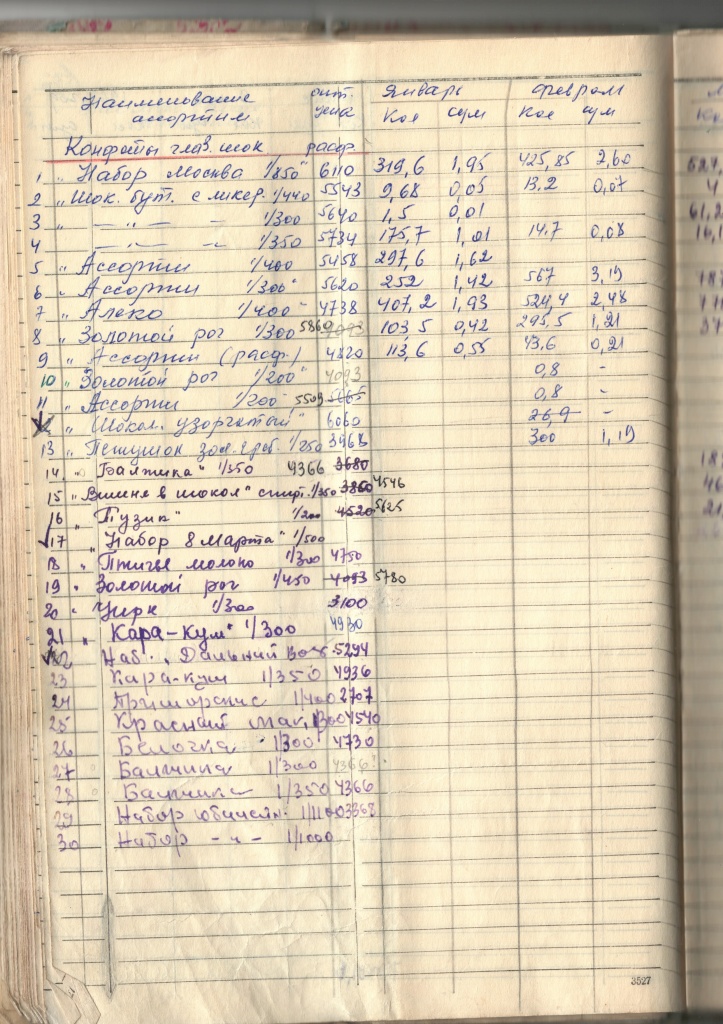 Наименование опт. Январь Февраль
ассортим цена Кол сум Кол сум
Конфеты глаз. шок расф.
1 " Набор Москва 1/850" 6110 319,6 1,95 425,85 2,60
2 " Шок. бут. с ликер. 1/440 5543 9,68 0,05 13.2 0,07
3 " — " — — 1/300 5640 1,5 0,01
4 — " — — 1/350 5734 175,7 1,01 14.7 0,08
5 " Ассорти 1/400 5458 297,6 1,62
6 " Ассорти 1/300" 5620 252 1,42 567 3,19
7 " Алеко 1/400" 4738 407,2 1,93 524,4 2,48
8 " Золотой рог 1/300 5860 4093 103,5 0,42 295,5 1,21
9 " Ассорти (расф.) 4820 113,6 0,55 43,6 0,21
10 " Золотой рог 1/200" 4093 0,8 -
11 " Ассорти 1/200" 5509 5665 0,8 -
" Шокол. узорчатый" 6060 26,9 -
13 " Петушок зол. греб. 1/250 3968 300 1,19
14 " Балтика" 1/350 4366 3680
15 " Вишня в шокол" спирт. 1/350 3860 4546
16 " Пузик" 1/200 4520 5625
17 " Набор 8 Марта" 1/500
18 " Птичье молоко 1/300 4750
19 " Золотой рог 1/450 4093 5780
20 " Цирк 1/300 3100
21 " Кара-кум" 1/300 4930
22 Наб. " Дальний Вос. 5294
23 Кара-кум 1/350 4936
24 Приморские 1/400 2707
25 Красный мак, 1/300 4540
26 Белочка 1/300 4730
27 Балтика 1/300 4366
28 Балтика 1/350 4366
29 Набор юбилейн. 1/1100 3368
30 Набор - " - 1/1000
3527